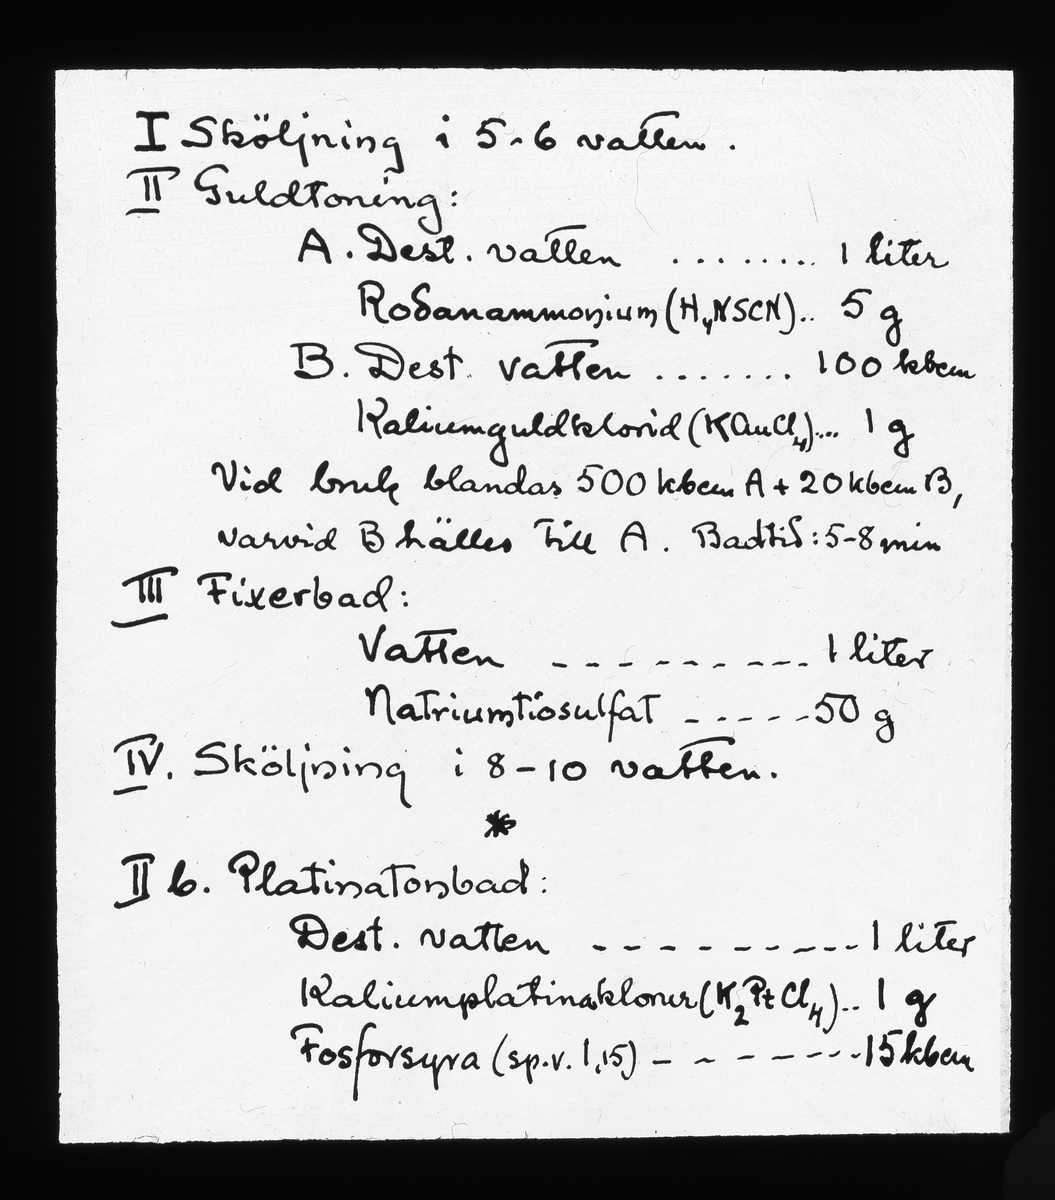 I Sköljning i 5-6 vatten.
II Guldtoning:
A. Dest. vatten ........ 1 liter
Rodanammonium (H₄NSCN).. 5 g
B. Dest. vatten ....... 100 kbcm
Kaliumguldklorid (KAuCl₄).... 1 g
Vid bruk blandas 500 kbcm A + 20 kbcm B,
varvid B hälles till A. Badtid: 5-8 min
III Fixerbad:
Vatten --------- 1 liter
Natriumtiosulfat ----- 50 g
IV. Sköljning i 8-10 vatten.
*
II b. Platinatonbad:
Dest. vatten --------- 1 liter
Kaliumplatinaklorur (K₂PtCl₄).. 1 g
Fosforsyra (sp.v. 1,15) ------- 15 kbcm